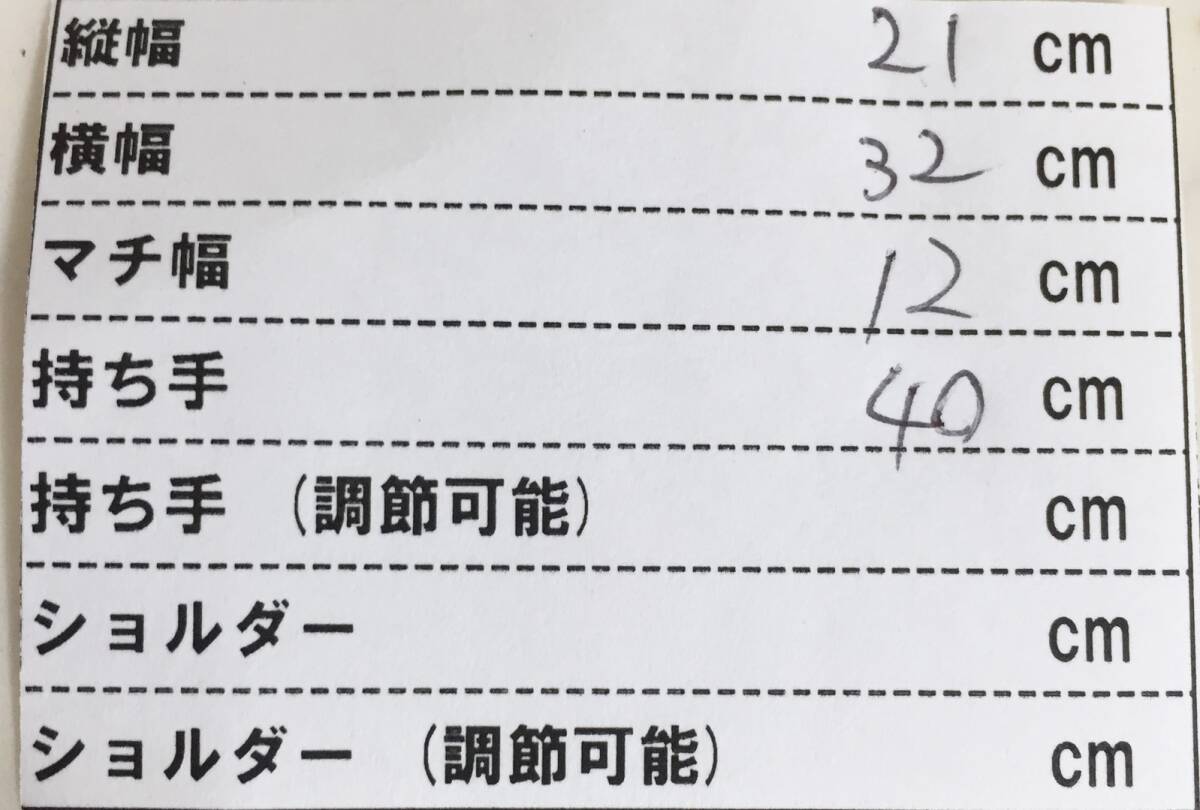 縦幅 21 cm
横幅 32 cm
マチ幅 12 cm
持ち手 40 cm
持ち手 (調節可能) cm
ショルダー cm
ショルダー (調節可能) cm